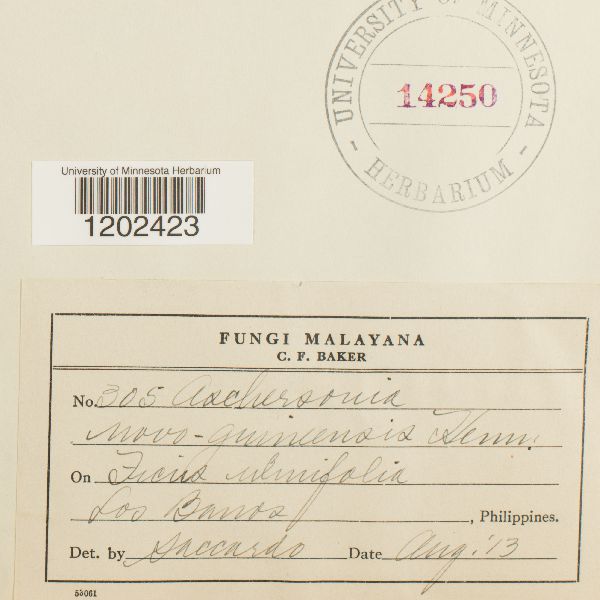 UNIVERSITY OF MINNESOTA
14250
- HERBARIUM -
University of Minnesota Herbarium
1202423
FUNGI MALAYANA
C. F. BAKER
No. 305 Aschersonia
novo-guineensis Henn.
On Ficus ulmifolia
Los Banos, Philippines.
Det. by Saccardo Date Aug. '13
55061